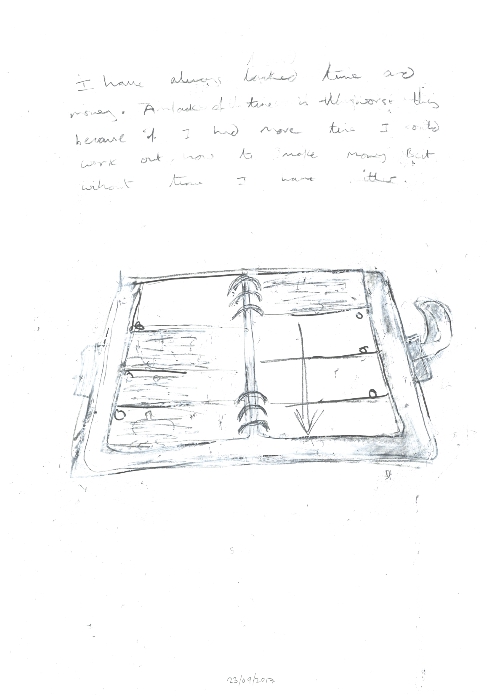 I have always lacked time and
money. A lack of time is the worst thing
because if I had more time I could
work out how to make money but
without time I have
23/09/2013